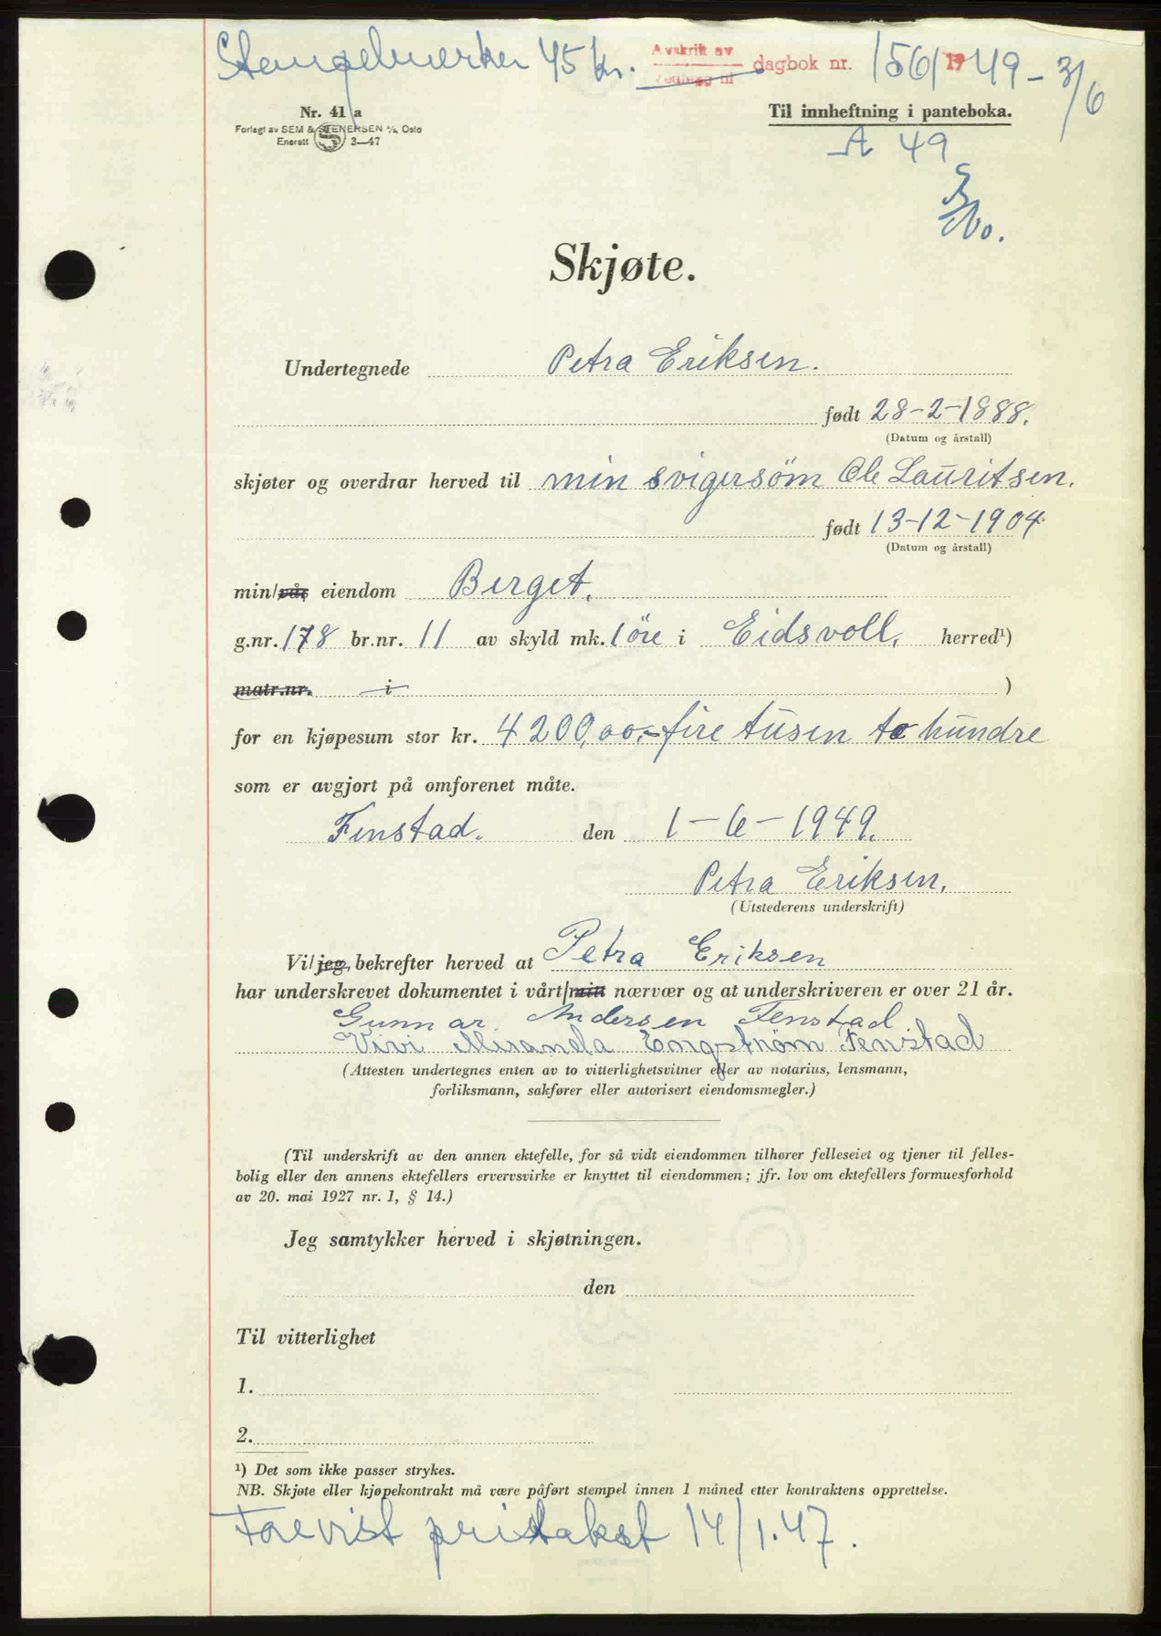 Stempelmerker 45 kr. Avskrift av dagbok nr. 1561 1949 - 3/6
Nr. 41 a
Til innheftning i panteboka.
Forlagt av SEM & STENERSEN A/S, Oslo
Enerett 3—47
A 49
Skjøte.
Undertegnede Petra Eriksen.
født 28-2-1888.
(Datum og årstall)
skjøter og overdrar herved til min svigersöm Ole Lauritsen.
født 13-12-1904
(Datum og årstall)
min/vår eiendom Berget.
g.nr. 178 br.nr. 11 av skyld mk. 1 öre i Eidsvoll, herred¹)
matr.nr. i )
for en kjøpesum stor kr. 4200,00.- fire tusen to hundre
som er avgjort på omforenet måte.
Fenstad. den 1-6-1949.
Petra Eriksen.
(Utstederens underskrift)
Vi/jeg, bekrefter herved at Petra Eriksen
har underskrevet dokumentet i vårt/mitt nærvær og at underskriveren er over 21 år.
Gunnar Andersen Fenstad.
Vivi Miranda Engstrøm Fenstad
(Attesten undertegnes enten av to vitterlighetsvitner eller av notarius, lensmann,
forliksmann, sakfører eller autorisert eiendomsmegler.)
(Til underskrift av den annen ektefelle, for så vidt eiendommen tilhører felleseiet og tjener til felles-
bolig eller den annens ektefellers ervervsvirke er knyttet til eiendommen; jfr. lov om ektefellers formuesforhold
av 20. mai 1927 nr. 1, § 14.)
Jeg samtykker herved i skjøtningen.
den
Til vitterlighet
1.
2.
¹) Det som ikke passer strykes.
NB. Skjøte eller kjøpekontrakt må være påført stempel innen 1 måned etter kontraktens opprettelse.
Forevist pristakst 14/1.47.